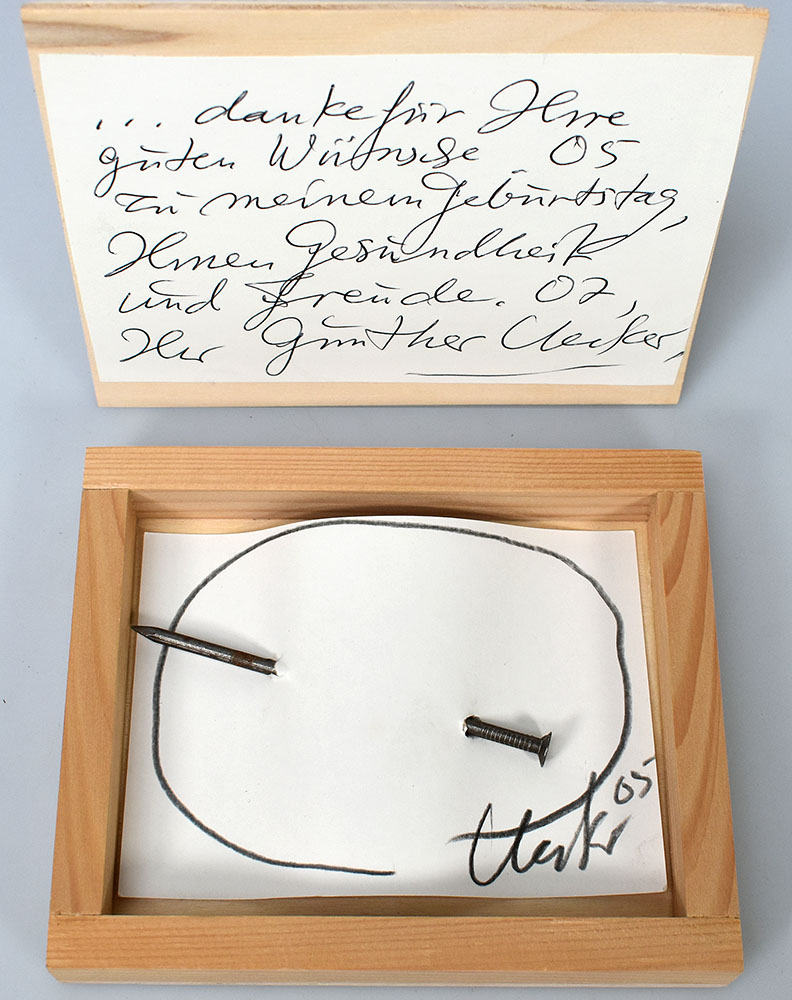 ... danke für Ihre
guten Wünsche 05
zu meinem Geburtstag,
Ihnen Gesundheit
und Freude. 07,
Ihr Günther Uecker,
Uecker 05